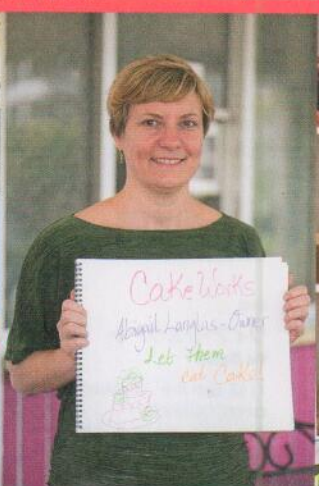 Cake Works
Abigail Langlas-Owner
Let Them
eat Cake!